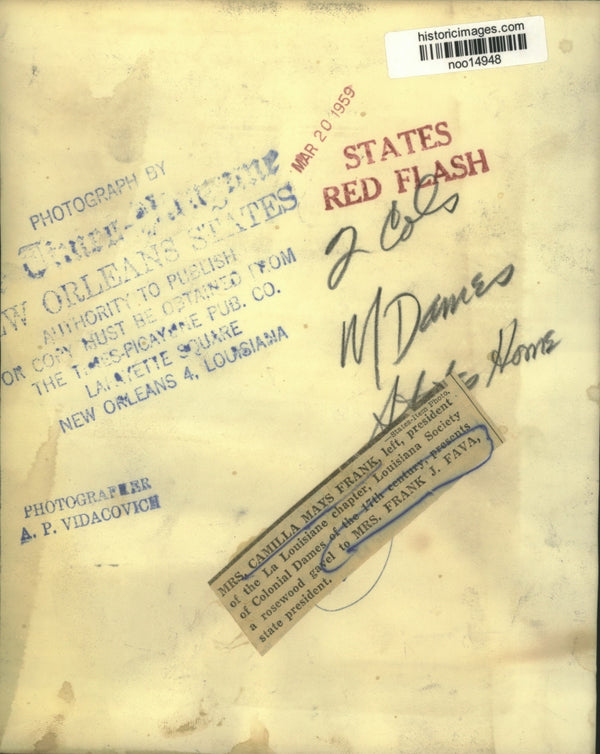 historicimages.com
noo14948
MAR 20 1959
STATES
RED FLASH
PHOTOGRAPH BY
Times-Picayune
NEW ORLEANS STATES
AUTHORITY TO PUBLISH
OR COPY MUST BE OBTAINED FROM
THE TIMES-PICAYUNE PUB. CO.
LAFAYETTE SQUARE
NEW ORLEANS 4, LOUISIANA
2 Cols
M Dames
Home
PHOTOGRAPHER
A. P. VIDACOVICH
—States-Item Photo.
MRS. CAMILLA MAYS FRANK, left, president
of the La Louisiane chapter, Louisiana Society
of Colonial Dames of the 17th century, presents
a rosewood gavel to MRS. FRANK J. FAVA,
state president.